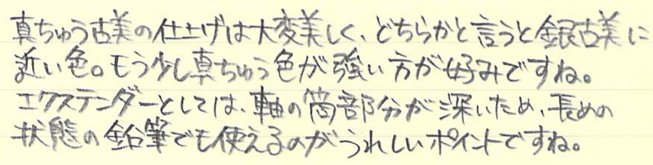 真ちゅう古美の仕上げは大変美しく、どちらかと言うと銀古美に
近い色。もう少し真ちゅう色が強い方が好みですね。
エクステンダーとしては、軸の筒部分が深いため、長めの
状態の鉛筆でも使えるのがうれしいポイントですね。